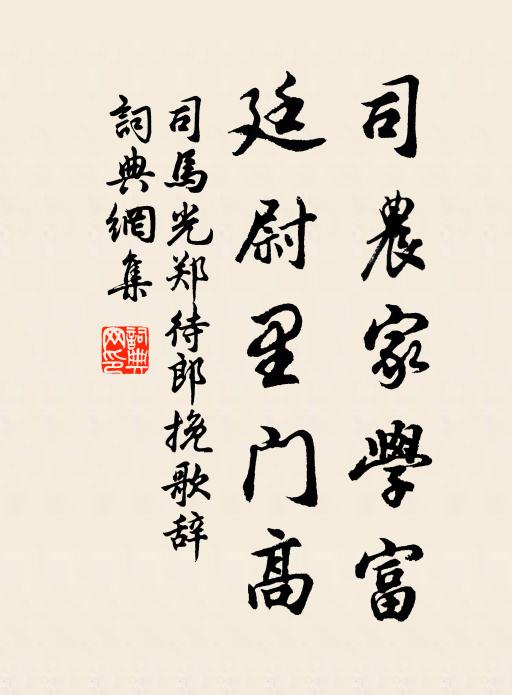 司農家學富
廷尉里门高
司馬光郑待郎挽歌辞
詞典網集
詞典网印